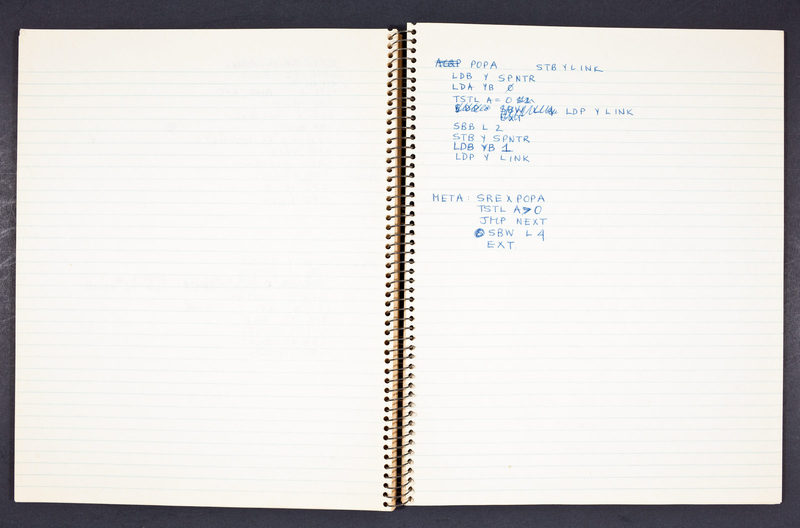 POPA STB Y LINK
LDB Y SPNTR
LDA YB Ø
TSTL A = 0
LDP Y LINK
EXT
SBB L 2
STB Y SPNTR
LDB YB 1
LDP Y LINK
META: SREX POPA
TSTL A > 0
JMP NEXT
SBW L 4
EXT